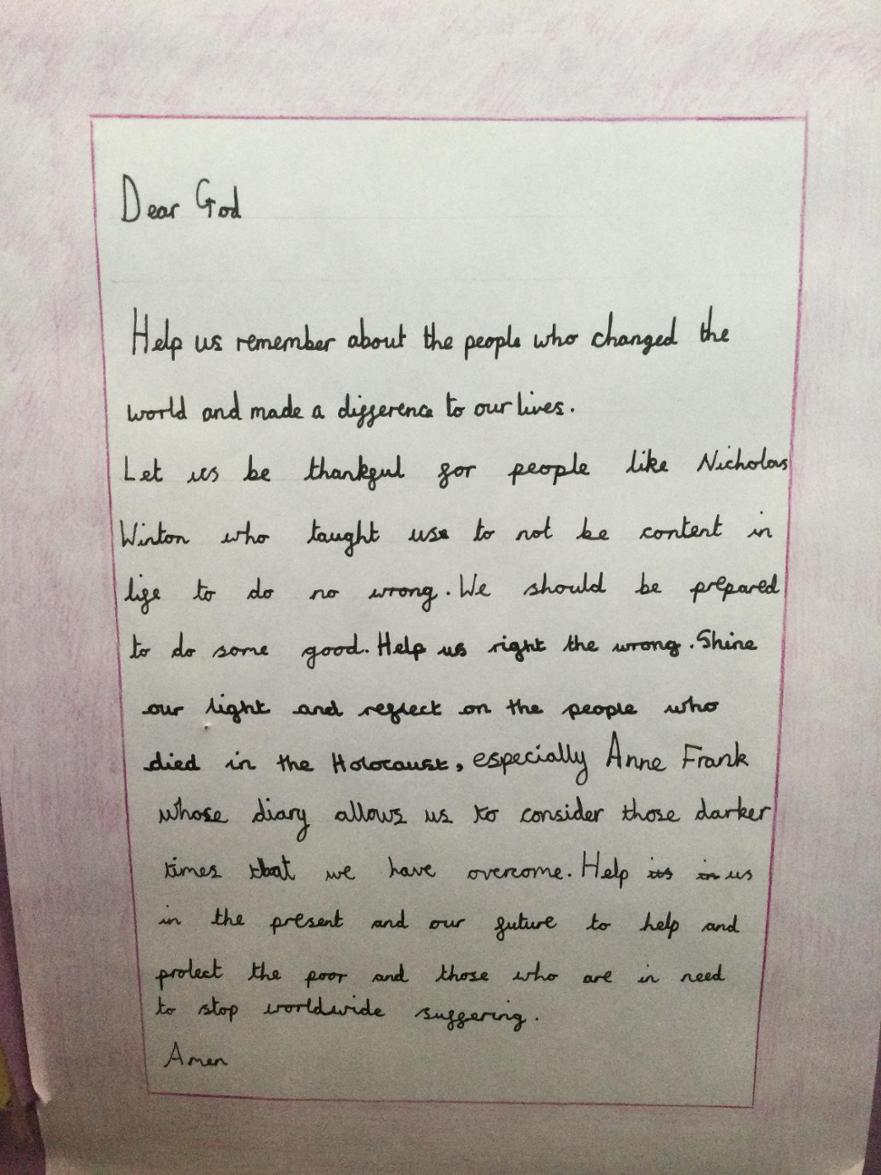 Dear God
Help us remember about the people who changed the
world and made a difference to our lives.
Let us be thankful for people like Nicholas
Winton who taught use to not be content in
life to do no wrong. We should be prepared
to do some good. Help us right the wrong. Shine
our light and reflect on the people who
died in the Holocaust, especially Anne Frank
whose diary allows us to consider those darker
times that we have overcome. Help us
in the present and our future to help and
protect the poor and those who are in need
to stop worldwide suffering.
Amen